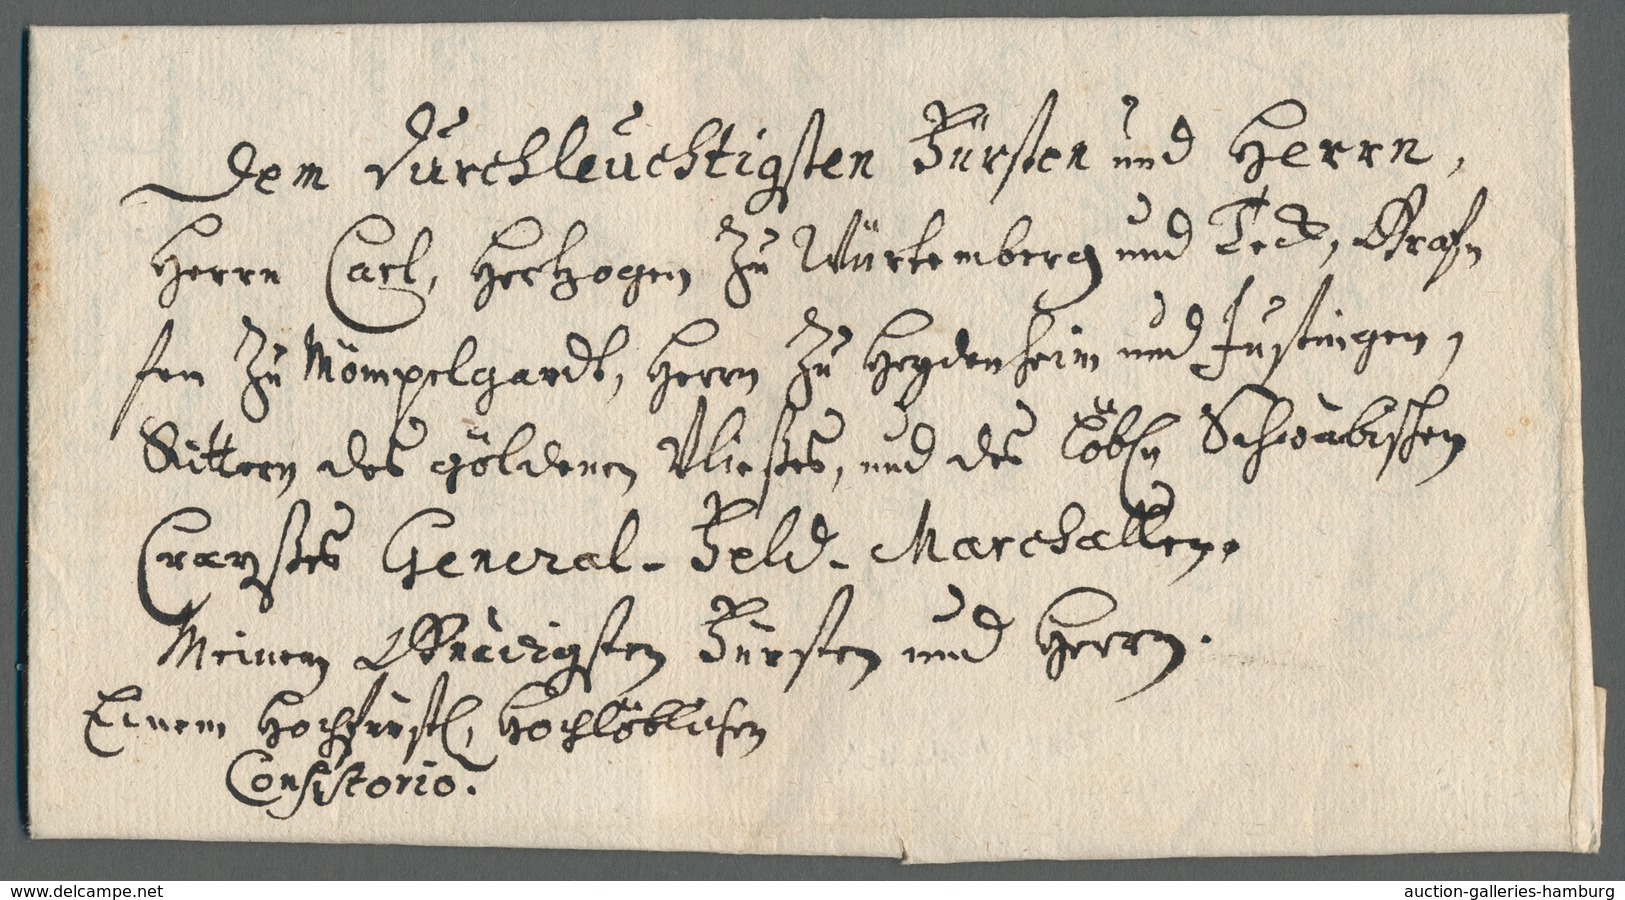 Dem Durchleuchtigsten Fürsten und Herrn,
Herrn Carl, Hertzogen zu Würtemberg und Teck, Grafn
fen zu Mömpelgardt, Herrn zu Heydenheim und Justingen,
Rittern des göldenen Vließes, und des Löbln Schwäbischen
Crayßes General-Feld-Marchallen.
Meinem Gnädigsten Fürsten und Herrn.
Einem Hochfürstl, Hochlöblichen
Consistorio.
www.delcampe.net
auction-galleries-hamburg